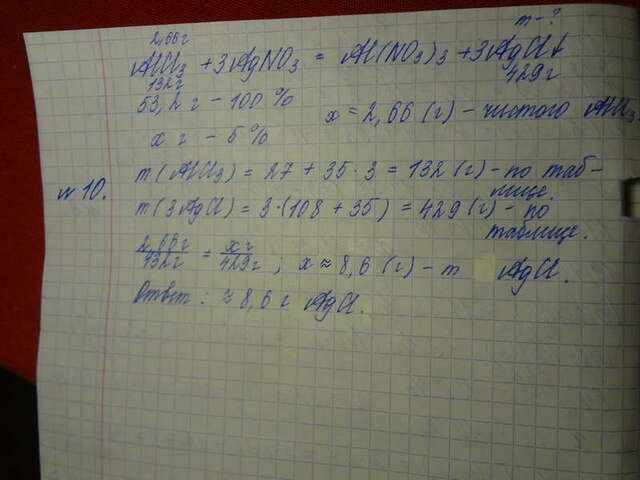 m - ?
2,66 г
AlCl3 + 3AgNO3 = Al(NO3)3 + 3AgCl↓
132 г 429 г
53,2 г - 100 %
x = 2,66 (г) - чистого AlCl3.
x г - 5 %
№ 10.
m (AlCl3) = 27 + 35 · 3 = 132 (г) - по таб-
лице.
m (3AgCl) = 3 · (108 + 35) = 429 (г) - по
таблице.
2,66 г / 132 г = x г / 429 г ; x ≈ 8,6 (г) - m AgCl.
Ответ : ≈ 8,6 г AgCl.